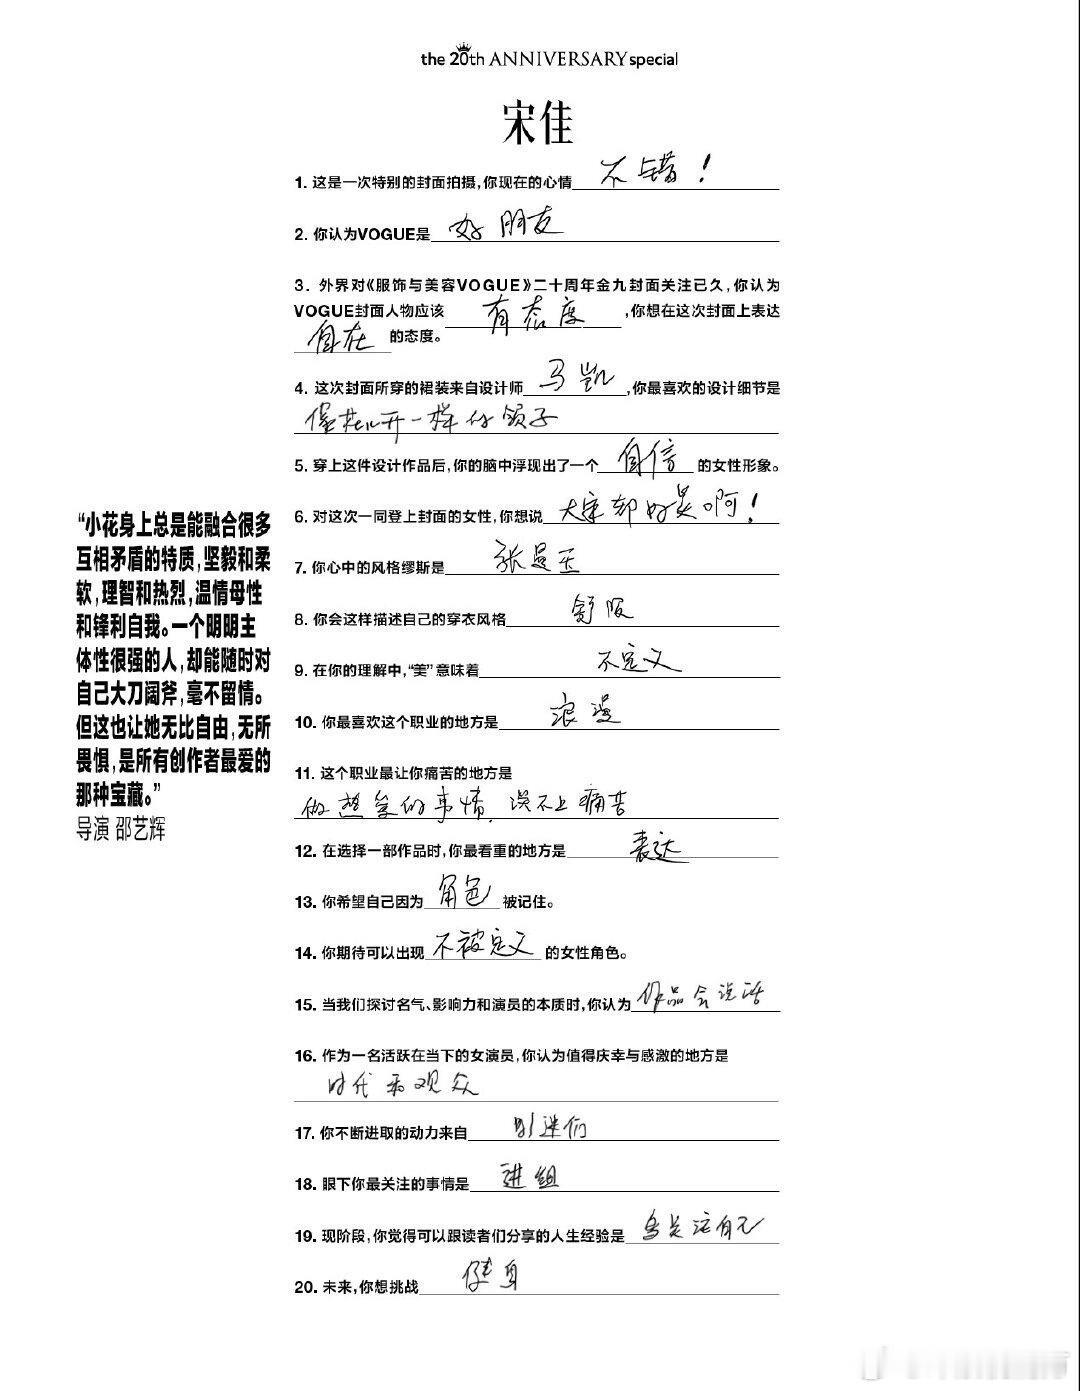 the 20th ANNIVERSARY special
宋佳
1. 这是一次特别的封面拍摄,你现在的心情 不错!
2. 你认为VOGUE是 好朋友
3. 外界对《服饰与美容VOGUE》二十周年金九封面关注已久,你认为
VOGUE封面人物应该 有态度 ,你想在这次封面上表达
自在 的态度。
4. 这次封面所穿的裙装来自设计师 马凯 ,你最喜欢的设计细节是
像花儿开一样的领子
5. 穿上这件设计作品后,你的脑中浮现出了一个 自信 的女性形象。
6. 对这次一同登上封面的女性,你想说 大家都好美啊!
7. 你心中的风格缪斯是 张曼玉
8. 你会这样描述自己的穿衣风格 舒服
9. 在你的理解中,“美”意味着 不定义
10. 你最喜欢这个职业的地方是 浪漫
11. 这个职业最让你痛苦的地方是
做热爱的事情,谈不上痛苦
12. 在选择一部作品时,你最看重的地方是 表达
13. 你希望自己因为 角色 被记住。
14. 你期待可以出现 不被定义 的女性角色。
15. 当我们探讨名气、影响力和演员的本质时,你认为 作品会说话
16. 作为一名活跃在当下的女演员,你认为值得庆幸与感激的地方是
时代和观众
17. 你不断进取的动力来自 影迷们
18. 眼下你最关注的事情是 进组
19. 现阶段,你觉得可以跟读者们分享的人生经验是 多关注自己
20. 未来,你想挑战 健身
“小花身上总是能融合很多
互相矛盾的特质,坚毅和柔
软,理智和热烈,温情母性
和锋利自我。一个明明主
体性很强的人,却能随时对
自己大刀阔斧,毫不留情。
但这也让她无比自由,无所
畏惧,是所有创作者最爱的
那种宝藏。”
导演 邵艺辉